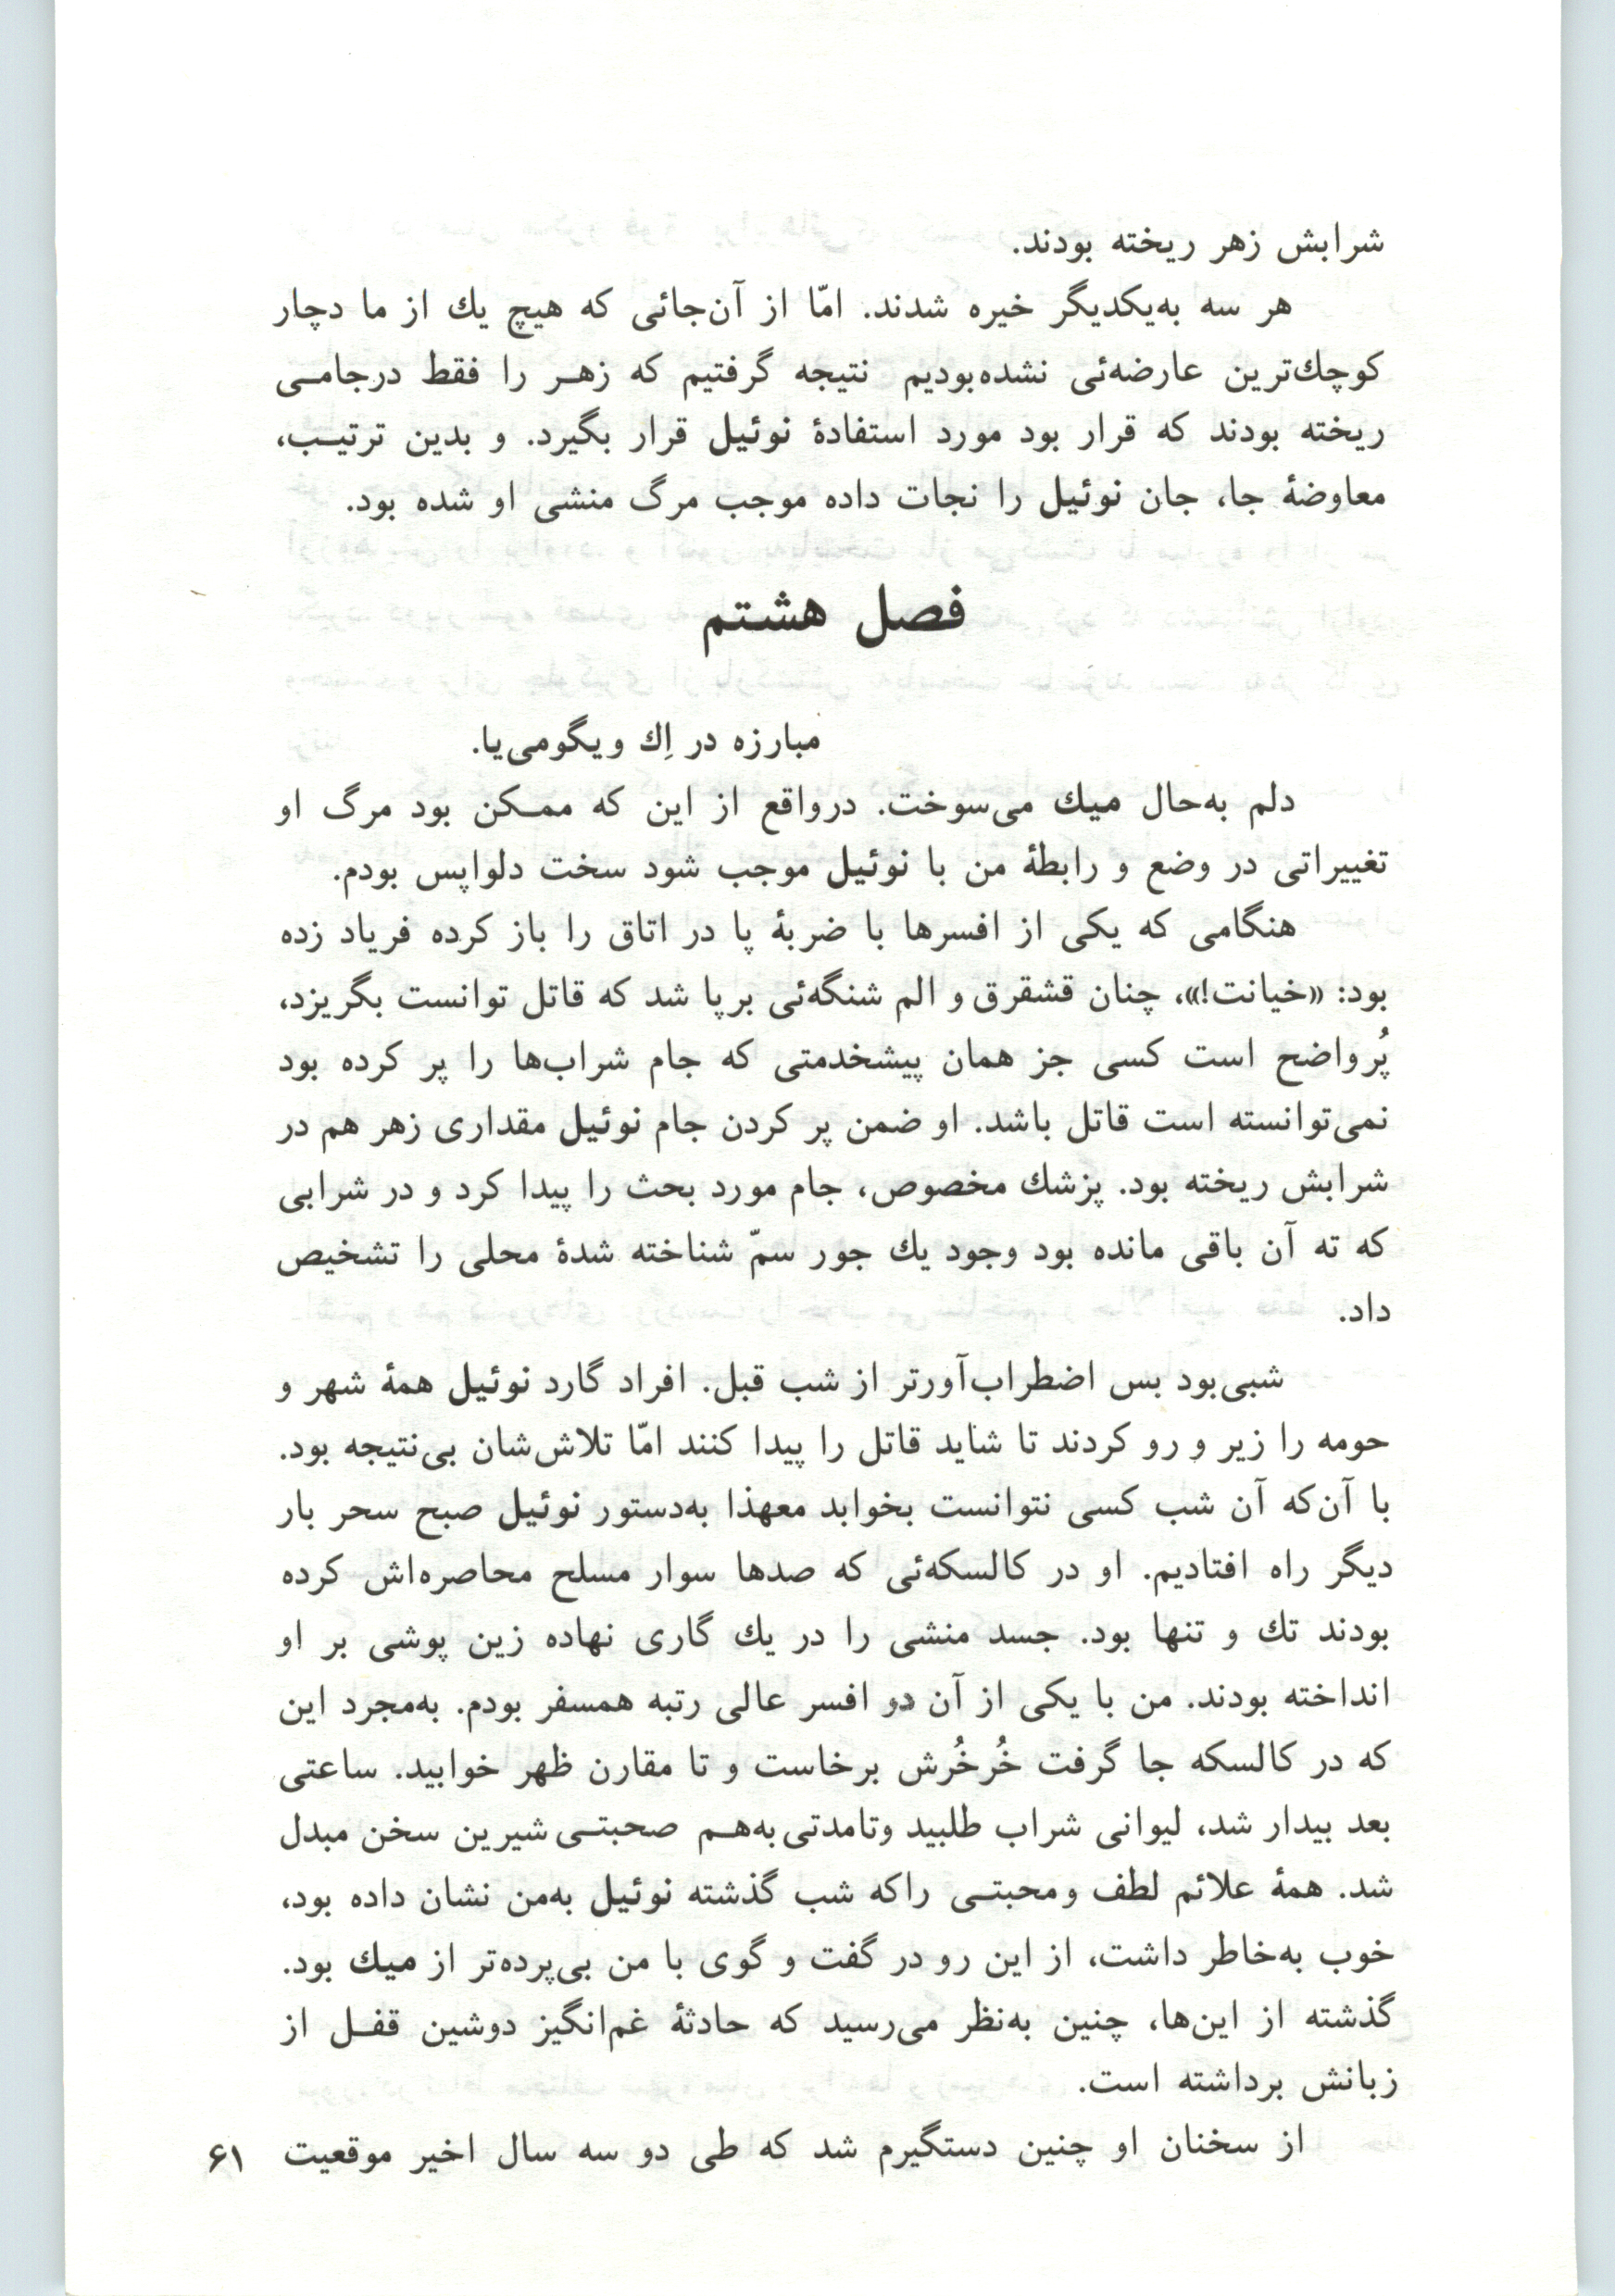 شرابش زهر ریخته بودند.
هر سه به‌یکدیگر خیره شدند. امّا از آن‌جائی که هیچ یك از ما دچار
کوچك‌ترین عارضه‌ئی نشده‌بودیم نتیجه گرفتیم که زهر را فقط درجامی
ریخته بودند که قرار بود مورد استفادهٔ نوئیل قرار بگیرد. و بدین ترتیب،
معاوضهٔ جا، جان نوئیل را نجات داده موجب مرگ منشی او شده بود.
فصل هشتم
مبارزه در اِك ویگومی‌یا.
دلم به‌حال میك می‌سوخت. درواقع از این که ممکن بود مرگ او
تغییراتی در وضع و رابطهٔ من با نوئیل موجب شود سخت دلواپس بودم.
هنگامی که یکی از افسرها با ضربهٔ پا در اتاق را باز کرده فریاد زده
بود: «خیانت!»، چنان قشقرق و الم شنگه‌ئی برپا شد که قاتل توانست بگریزد،
پُرواضح است کسی جز همان پیشخدمتی که جام شراب‌ها را پر کرده بود
نمی‌توانسته است قاتل باشد. او ضمن پر کردن جام نوئیل مقداری زهر هم در
شرابش ریخته بود. پزشك مخصوص، جام مورد بحث را پیدا کرد و در شرابی
که ته آن باقی مانده بود وجود یك جور سمّ شناخته شدهٔ محلی را تشخیص
داد.
شبی‌بود بس اضطراب‌آورتر از شب قبل. افراد گارد نوئیل همهٔ شهر و
حومه را زیر و رو کردند تا شاید قاتل را پیدا کنند امّا تلاش‌شان بی‌نتیجه بود.
با آن‌که آن شب کسی نتوانست بخوابد معهذا به‌دستور نوئیل صبح سحر بار
دیگر راه افتادیم. او در کالسکه‌ئی که صدها سوار مسلح محاصره‌اش کرده
بودند تك و تنها بود. جسد منشی را در یك گاری نهاده زین پوشی بر او
انداخته بودند. من با یکی از آن دو افسر عالی رتبه همسفر بودم. به‌مجرد این
که در کالسکه جا گرفت خُرخُرش برخاست و تا مقارن ظهر خوابید. ساعتی
بعد بیدار شد، لیوانی شراب طلبید وتامدتی به‌هم صحبتی شیرین سخن مبدل
شد. همهٔ علائم لطف ومحبتی راکه شب گذشته نوئیل به‌من نشان داده بود،
خوب به‌خاطر داشت، از این رو در گفت و گوی با من بی‌پرده‌تر از میك بود.
گذشته از این‌ها، چنین به‌نظر می‌رسید که حادثهٔ غم‌انگیز دوشین قفل از
زبانش برداشته است.
از سخنان او چنین دستگیرم شد که طی دو سه سال اخیر موقعیت
۶۱